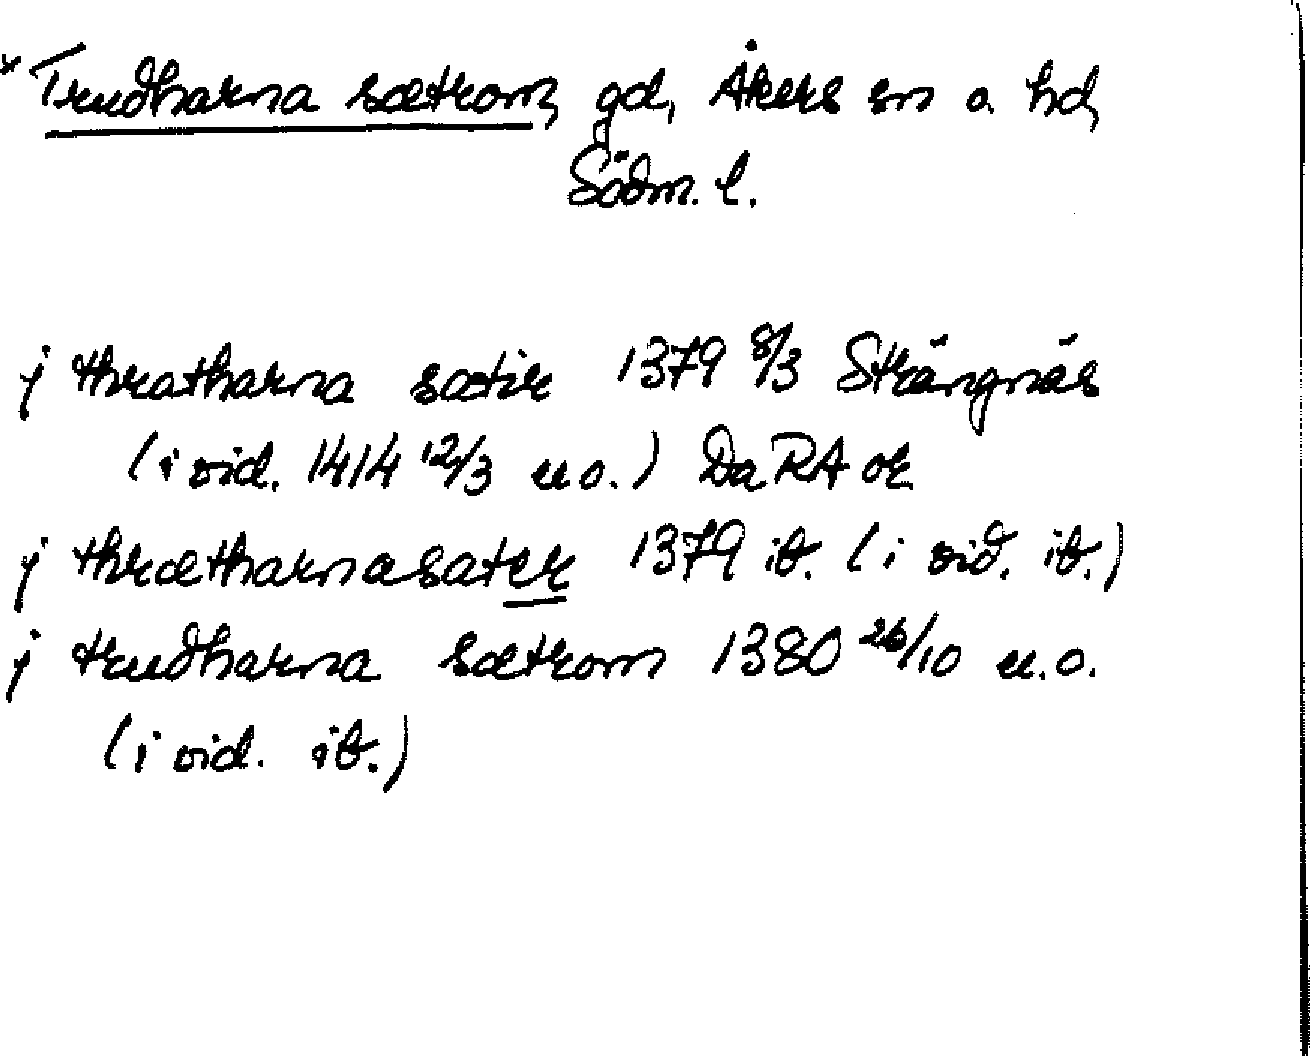 * Trudharna sætrom, gd, Åkers sn o. hd,
Södm. l.
j thratharna sætir 1379 8/3 Strängnäs
(i vid. 1414 12/3 u o.) Da RA or
j thrætharnasater 1379 ib. (i vid. ib.)
j trudharna sætrom 1380 26/10 u.o.
(i vid. ib.)